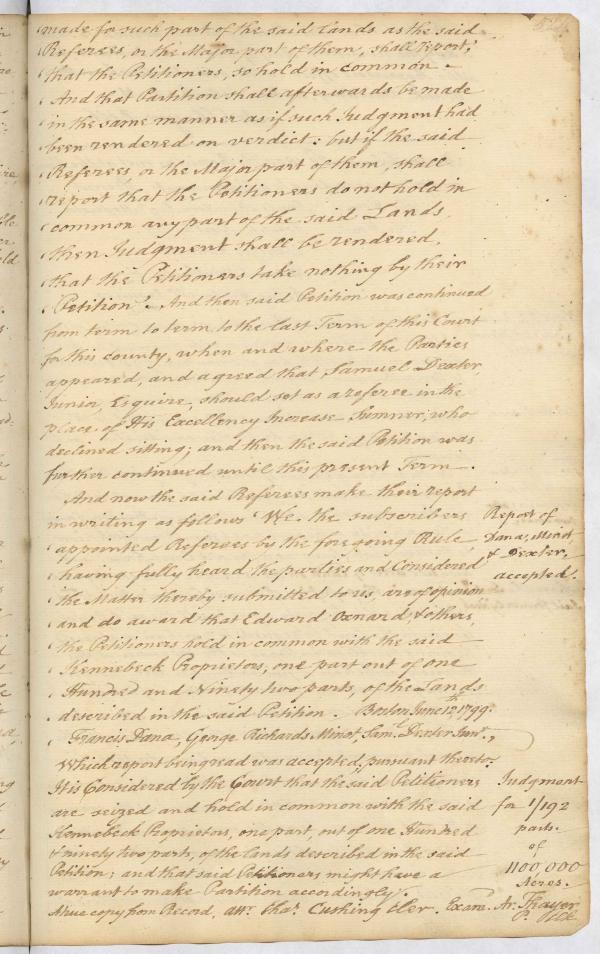 made for such part of the said Lands as the said
Referees, or the Major part of them, shall report,
that the Petitioners, so hold in common.
And that Partition shall afterwards be made
in the same manner as if such Judgment had
been rendered on verdict: but if the said
Referees, or the Major part of them, shall
report that the Petitioners do not hold in
common any part of the said Lands,
then Judgment shall be rendered,
that the Petitioners take nothing by their
Petition". And then said Petition was continued
from term to term to the last Term of this Court
for this county, when and where the Parties
appeared, and agreed that Samuel Dexter,
Junior, Esquire, should set as a referee in the
place of His Excellency Increase Sumner, who
declined sitting; and then the said Petition was
further continued until this present Term.
And now the said Referees make their report
in writing as follows "We the subscribers
appointed Referees by the foregoing Rule,
having fully heard the parties and Considered
the Matter thereby submitted to us, are of opinion
and do award that Edward Oxnard, & others,
the Petitioners hold in common with the said
Kennebeck Proprietors, one part out of one
Hundred and Ninety two parts, of the Lands
described in the said Petition. Boston June 12th 1799.
Francis Dana, George Richards Minot, Saml. Dexter Junr.,
Which report being read was accepted, pursuant thereto.
It is Considered by the Court that the said Petitioners
are seized and hold in common with the said
Kennebeck Proprietors, one part, out of one Hundred
& ninety two parts, of the lands described in the said
Petition; and that said Petitioners might have a
warrant to make Partition accordingly.
A true copy from Record, attr. Chas. Cushing Cler. Examd. Ar. Thayer
Report of
Dana, Minot
& Dexter,
accepted.
Judgment
for 1/192
parts.
of
1100,000
Acres.